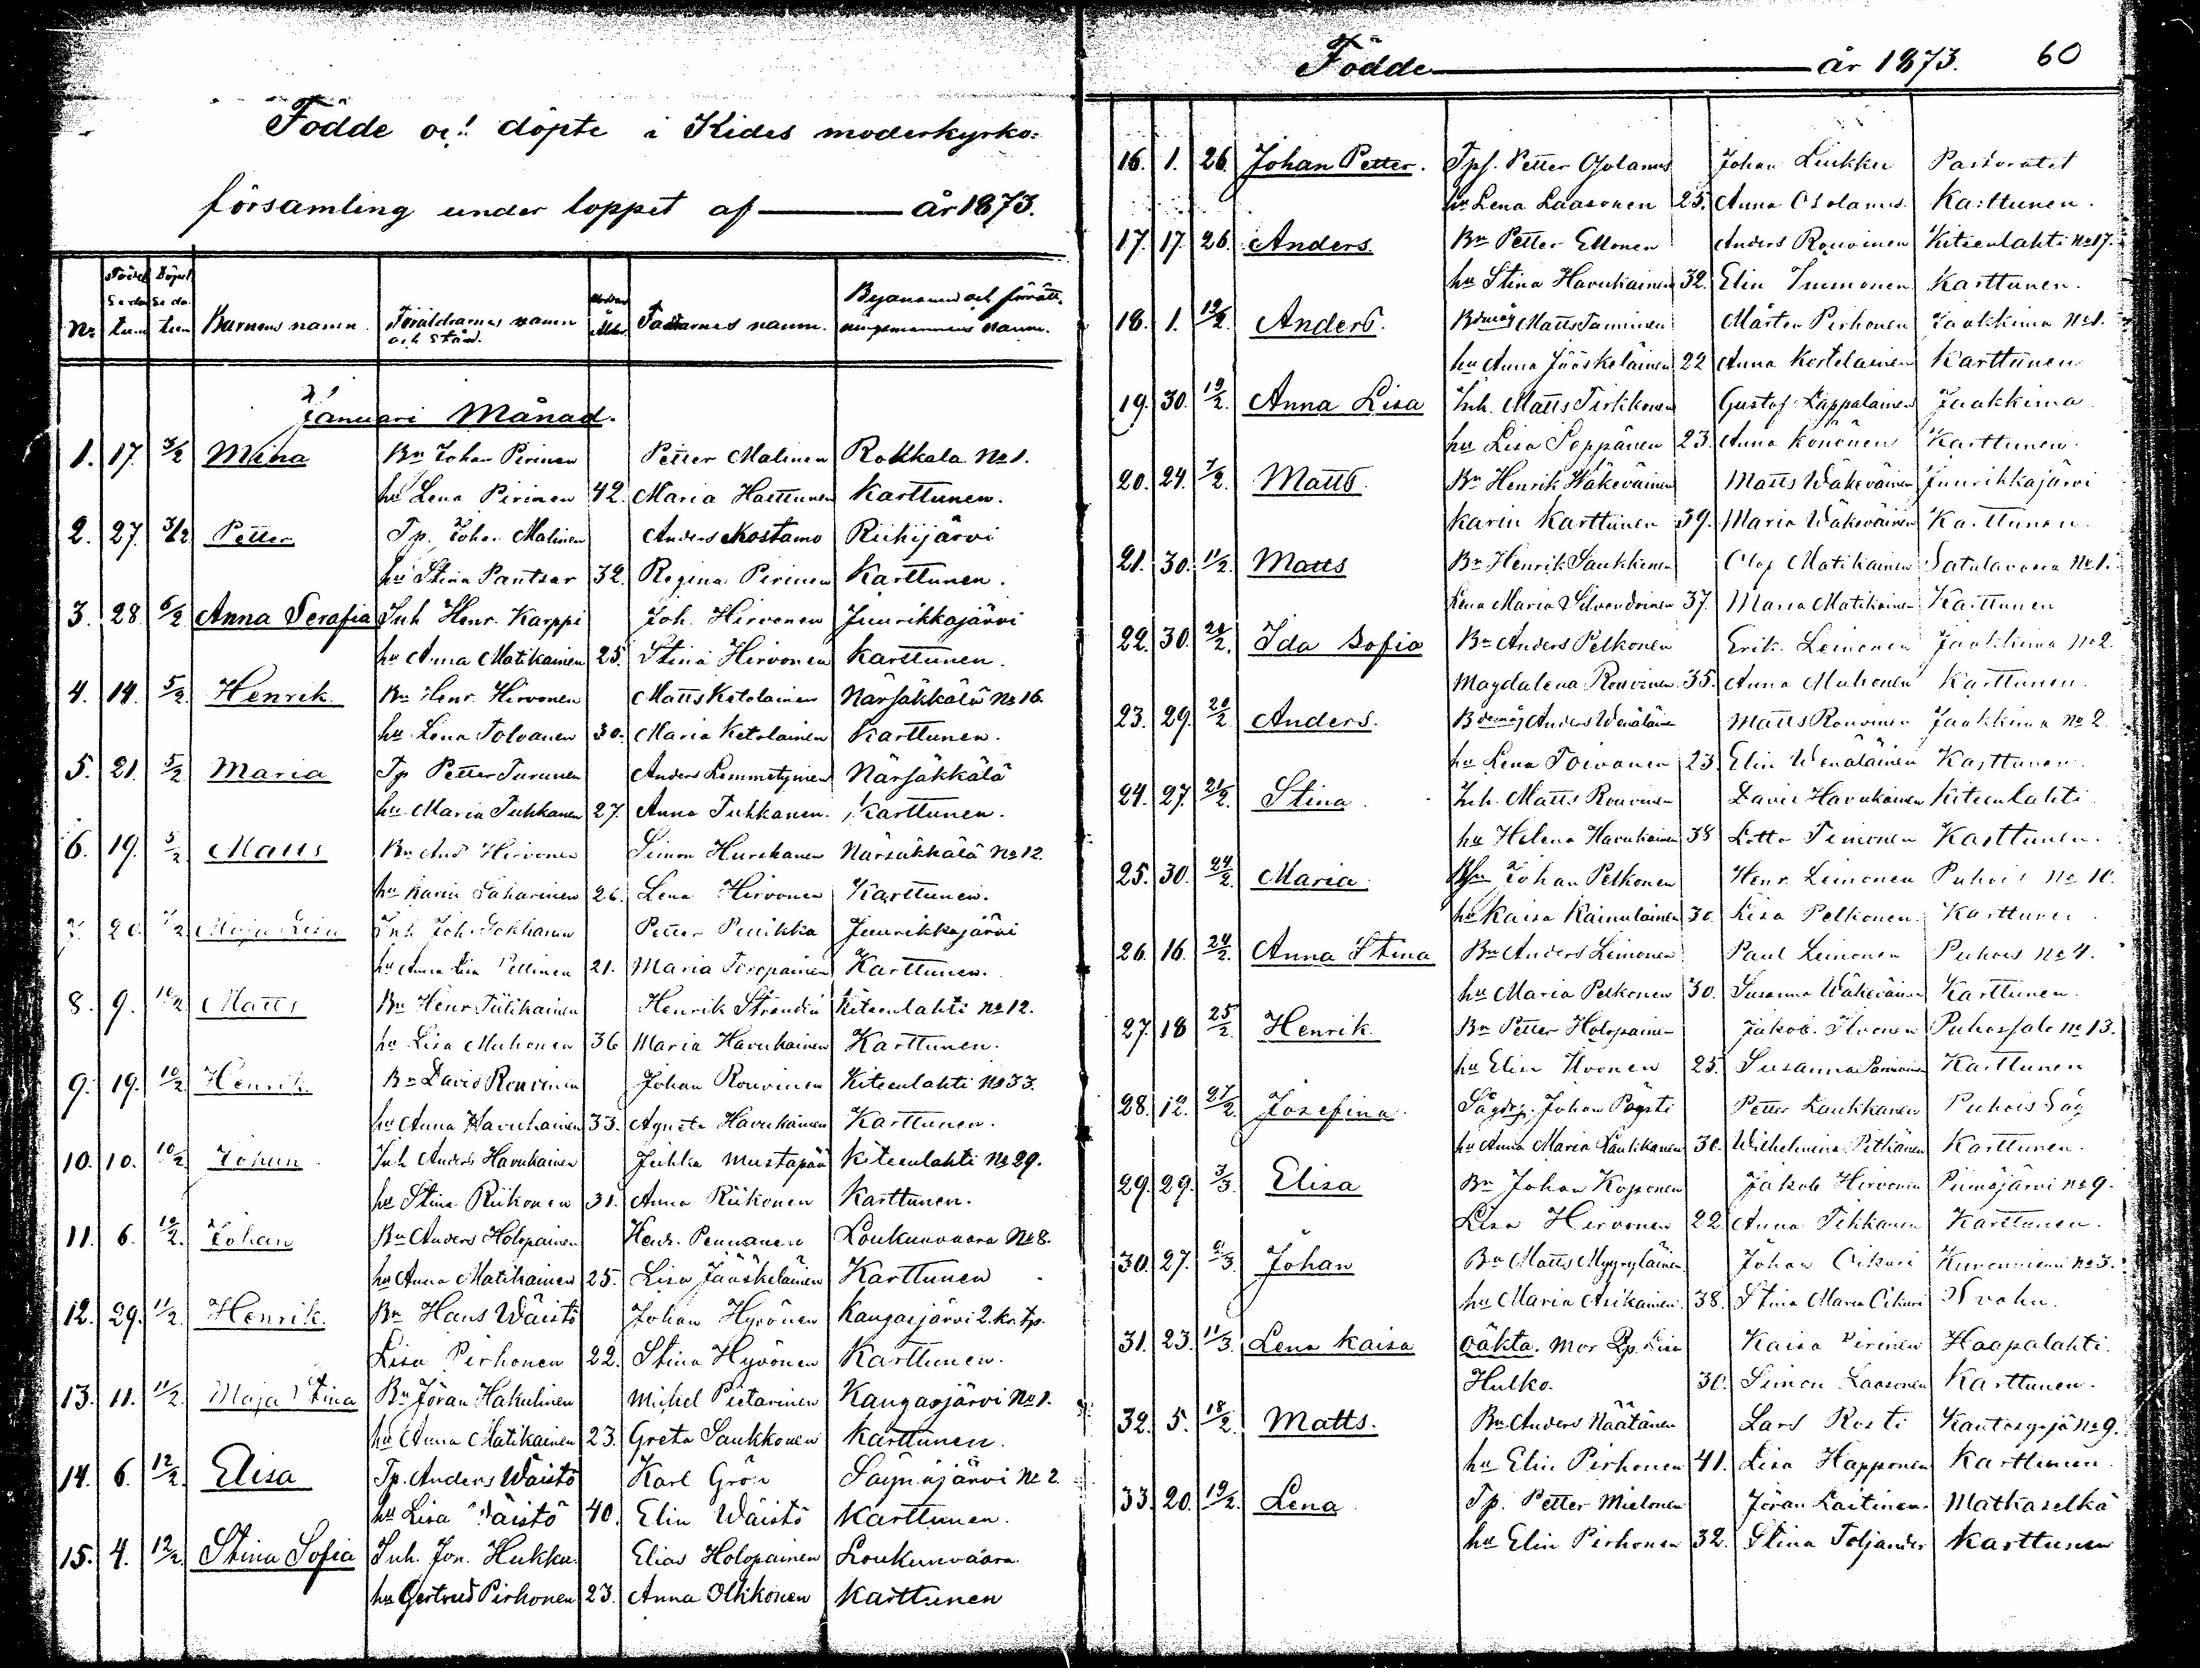 Födde och döpte i Kides moderkyrko=
församling under loppet af år 1873.
No Födelsedatum Döpelsedatum Barnens namn. Föräldrarnes namn och stånd. Moders ålder Faddrarnes namn. Byanamn och förrättningsmannens namn.
Januari Månad.
1. 17. 3/2 Mina Bn Johan Pirinen Petter Malinen Rokkala No 1.
hu Lena Pirinen 42. Maria Harttunen Karttunen.
2. 27. 3/2 Petter Tp. Johan Malinen Anders Kostamo Riihijärvi
hu Stina Pantsar 32. Regina Pirinen Karttunen.
3. 28. 5/2 Anna Serafia Inh Henr. Karppi Joh. Hirvonen Juurikkajärvi
hu Anna Matikainen 25. Stina Hirvonen Karttunen.
4. 14. 5/2 Henrik Bn Henr. Hirvonen Matts Ketolainen Närsäkkälä No 16.
hu Lena Tolvanen 30. Maria Ketolainen Karttunen.
5. 21. 5/2 Maria Tp Petter Turunen Anders Lemmetyinen Närsäkkälä
hu Maria Tuhkanen 27. Anna Tuhkanen. Karttunen.
6. 19. 5/2 Matts Bn And Hirvonen Simon Hurskanen Närsäkkälä No 12.
hu Karin Saharinen 26. Lena Hirvonen Karttunen.
7. 20. 7/2 Maja Lisa Inh Joh. Petter Puikko Juurikkajärvi
hu Anna Lisa Pellinen 21. Maria Toropainen Karttunen.
8. 9. 10/2 Matts Bn Henr. Tiilikainen Henrik Strandin Kiteenlahti No 12.
hu Lisa Muhonen 36 Maria Havukainen Karttunen.
9. 19. 10/2 Henrik Bn David Rouvinen Johan Rouvinen Kiteenlahti No 33.
hu Anna Havukainen 33. Agneta Havukainen Karttunen.
10. 10. 10/2 Johan Inh Anders Havukainen Juhka Mustapää Kiteenlahti No 29.
hu Stina Riikonen 31. Anna Riikonen Karttunen.
11. 6. 10/2. Johan Bn Anders Holopainen Henr. Pennanen Loukunvaara No 8.
hu Anna Matikainen 25. Lisa Jääskeläinen Karttunen
12. 29. 11/2. Henrik. Bn Hans Wäistö Johan Hyvönen Kangasjärvi 2. kr. tp.
Lisa Pirhonen 22. Stina Hyvönen Karttunen.
13. 11. 11/2. Maja Stina Bn Jöran Hakulinen Michel Pietarinen Kangasjärvi No 1.
hu Anna Matikainen 23. Greta Saukkonen Karttunen.
14. 6. 12/2. Elisa Tp. Anders Wäistö Karl Grön Säynäjärvi No 2
hu Lisa Wäistö 40. Elin Wäistö Karttunen.
15. 4. 12/2. Stina Sofia Inh. Jon. Hukka. Elias Holopainen Loukunvaara
hu Gertrud Pirhonen 23. Anna Olkkonen Karttunen
Födde år 1873. 60
16. 1. 26. Johan Petter. Petter Johan Liukku Pastoratet
hu Lena Laasonen 25. Anna Karttunen.
17. 17. 26. Anders Bn Petter Ellonen Anders Rouvinen Kiteenlahti No 17.
hu Stina Havukainen 32. Elin Immonen Karttunen.
18. 1. 12/2. Anders. Bdmåg Matts Tanninen Mårten Pirhonen Jaakkima No 1.
hu Anna Jääskeläinen 22 Anna Kostelainen Karttunen
19. 30. 19/2. Anna Lisa Inh. Matts Tirkkonen Gustaf Lappalainen Jaakkima
hu Lisa Soppänen 23. Anna Kononen Karttunen.
20. 24. 7/2. Matts. Bn Henrik Wäkeväinen Matts Wäkeväinen Juurikkajärvi
Karin Karttunen 39. Maria Wäkeväinen Karttunen.
21. 30. 11/2. Matts Bn Henrik Saukkonen Olof Matikainen Satulavaara No 1.
Lena Maria Silvendoinen 37. Maria Matikainen Karttunen
22. 30. Ida Sofia Bn Anders Pelkonen Erik. Leinonen Jaakkima No 2.
Magdalena Rouvinen 35. Anna Muhonen Karttunen.
23. 29. 20/2. Anders. Bdmåg Anders Wenäläinen Matts Rouvinen Jaakkima No 2.
hu Lena Toivanen 23. Elin Wenäläinen Karttunen.
24. 27. 21/2. Stina Inh. Matts Rouvinen David Havukainen Kiteenlahti
hu Helena Havukainen 38 Lotta Timonen Karttunen.
25. 30. 24/2. Maria Johan Pelkonen Henr. Leinonen Puhois No 10.
hu Kaisa Kainulainen 30. Lisa Pelkonen. Karttunen
26. 16. 24/2. Anna Stina Bn Anders Leinonen Paul Leinonen Puhois No 4.
hu Maria Pelkonen 30. Susanna Wäkeväinen Karttunen.
27. 18 25/2. Henrik. Bn Petter Holopainen Jakob. Ilvonen No 13.
hu Elin Ilvonen 25. Susanna Karttunen
28. 12. 27/2. Josefina. Johan Pöysti Petter Laukkanen Puhois Såg
hu Anna Maria Laukkanen 30. Wilhelmina Pitkänen Karttunen.
29. 29. 3/3. Elisa Bn Johan Koponen Jakob Hirvonen Piimäjärvi No 9.
Lisa Hirvonen 22. Anna Tikkanen Karttunen.
30. 27. 9/3. Johan Bn Matts Myyryläinen. Johan Oikari No 3.
hu Maria Asikainen. 38. Stina Maria Oikari
31. 23. 11/3. Lena Kaisa Oäkta. Mor Lisa Kaisa Pirinen Haapalahti.
Hulko. 30. Simon Laasonen Karttunen.
32. 5. 18/2. Matts. Bn Anders Näätänen Lars Rosti No 9.
hu Elin Pirhonen 41. Lisa Happonen Karttunen.
33. 20. 19/2. Lena Tp. Petter Mielonen Jöran Laitinen. Matkaselkä
hu Elin Pirhonen 32. Stina Toljander Karttunen